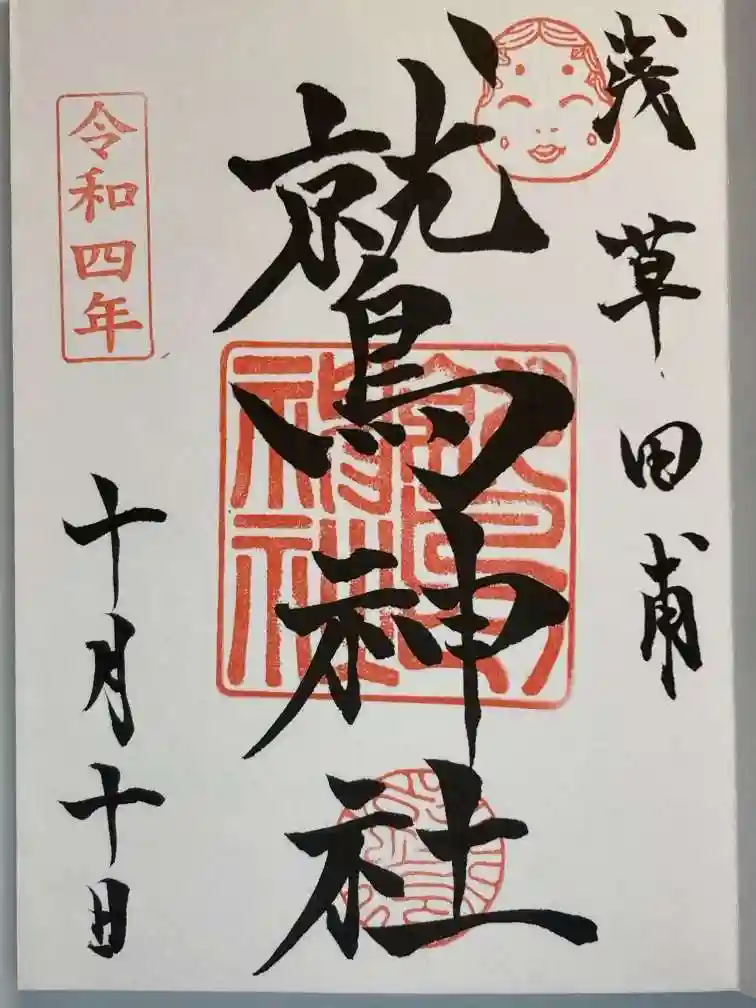 浅草田甫
鷲神社
鷲神社
令和四年
十月十日